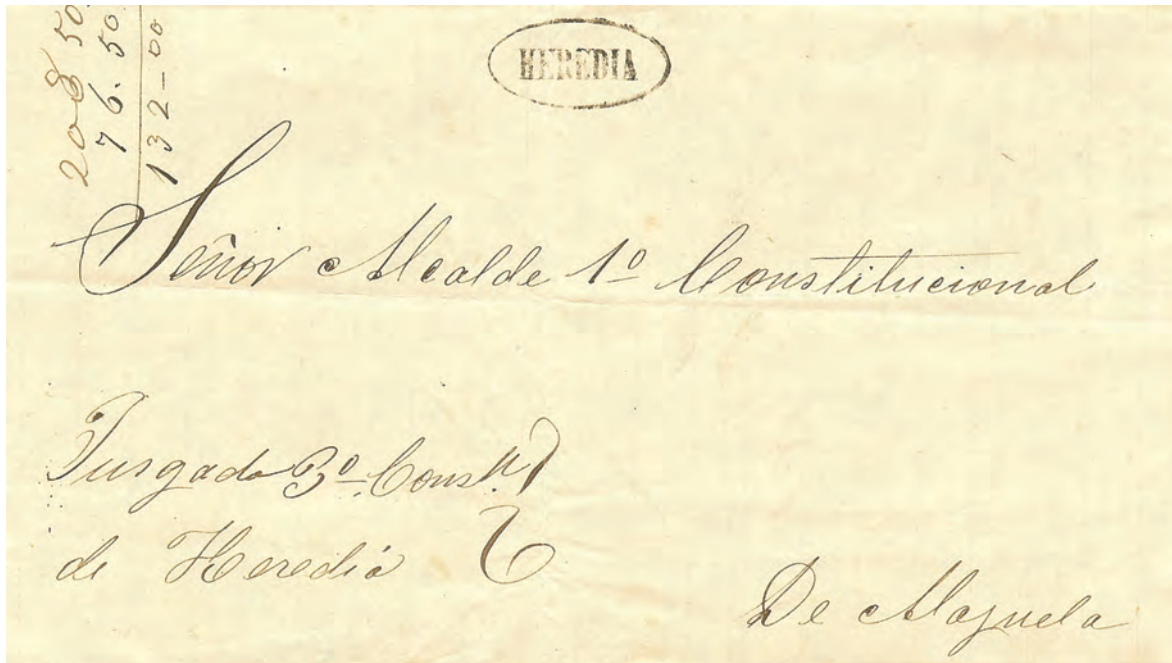 208 50
76. 50
132-00
HEREDIA
Señor Alcalde 1º Constitucional
Jusgado 3º Constl.
de Heredia
De Alajuela